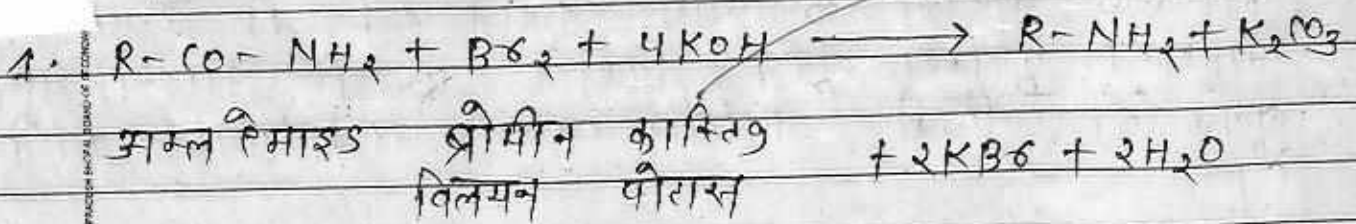 1. R-CO-NH₂ + Br₂ + 4KOH ⟶ R-NH₂ + K₂CO₃
अम्ल ऐमाइड ब्रोमीन कास्टिक + 2KBr + 2H₂O
विलयन पोटास